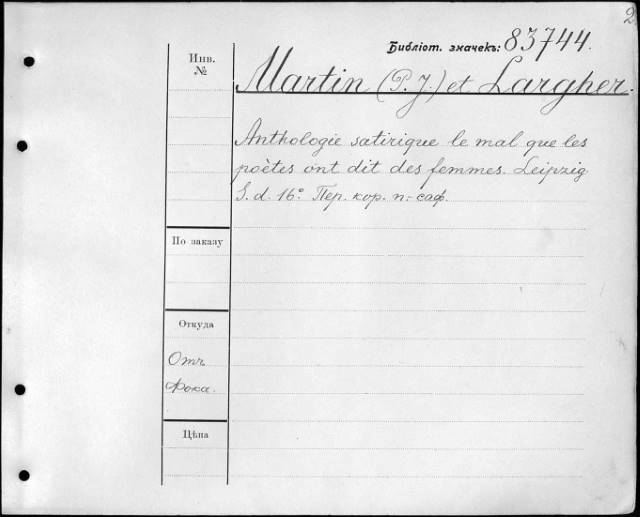 2
Библіот. значекъ: 83744.
Инв.
№
Martin (P. J.) et Largher.
Anthologie satirique le mal que les
poètes ont dit des femmes. Leipzig
S. d. 16° Пер. кор. п.-саф.
По заказу
Откуда
Отч.
Фока.
Цѣна